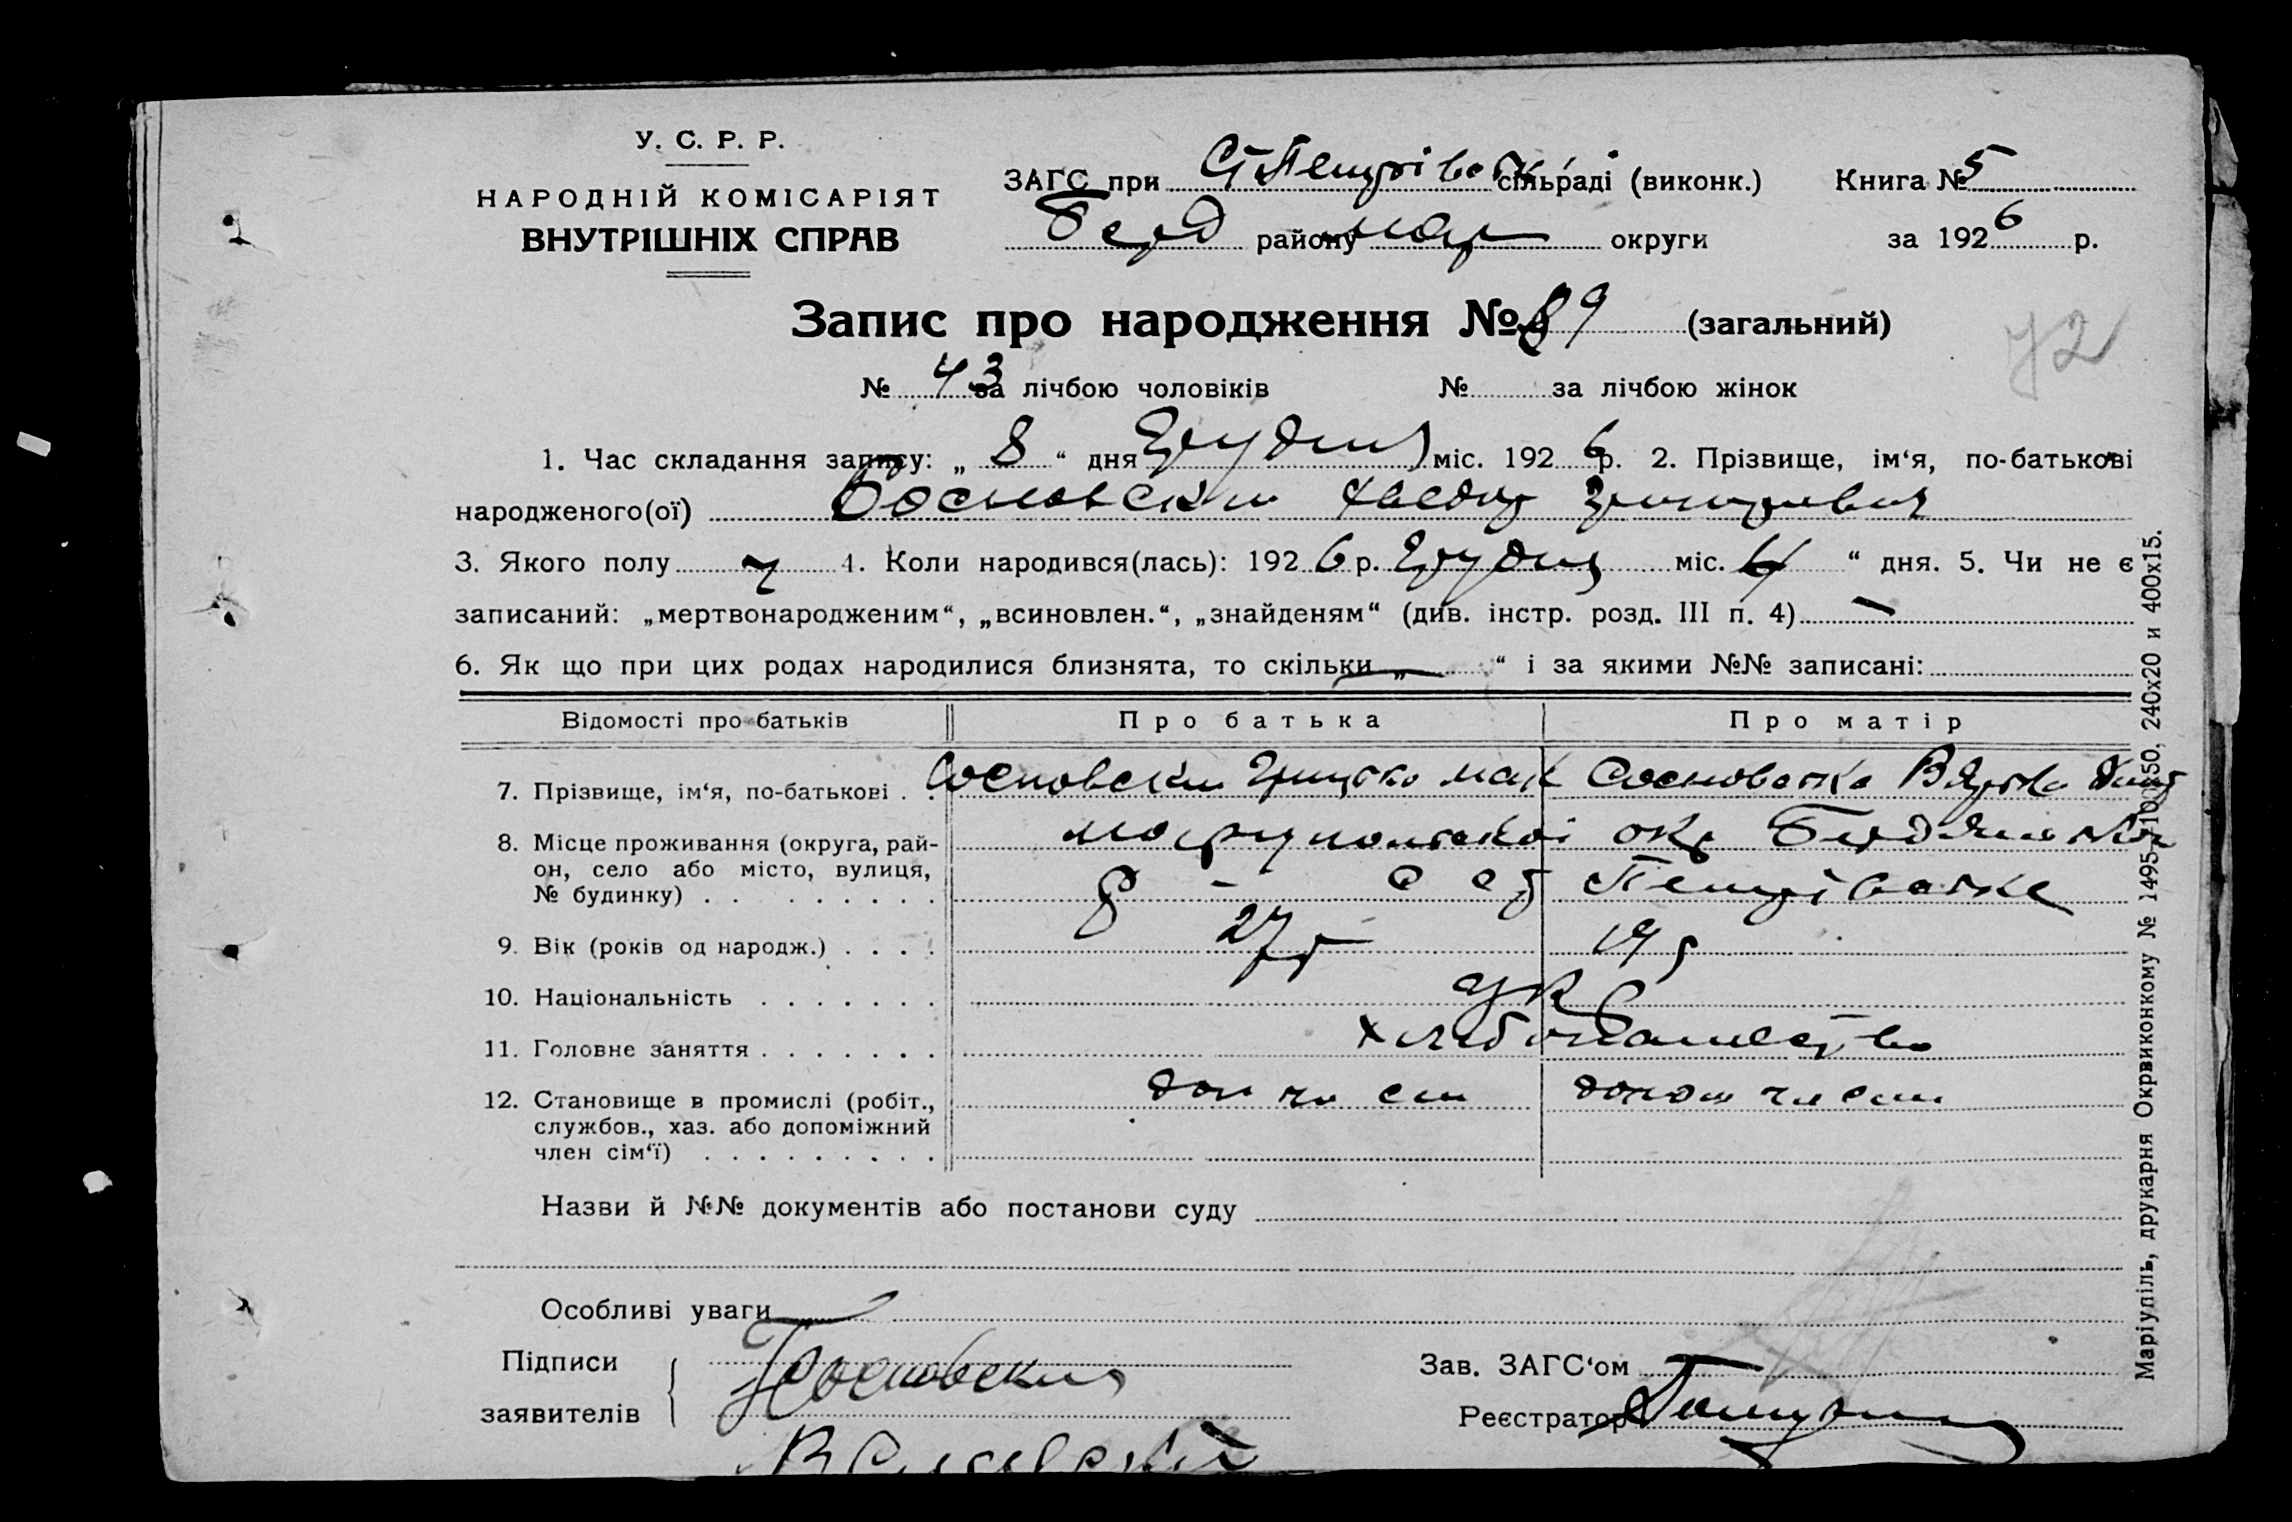 У. С. Р. Р.
НАРОДНІЙ КОМІСАРІЯТ
ВНУТРІШНІХ СПРАВ
ЗАГС при Ст Петрівськ. сільраді (виконк.) Книга № 5
Берд району Мар округи за 1926 р.
Запис про народження № 89 (загальний)
72
№ 43 за лічбою чоловіків № за лічбою жінок
1. Час складання запису: „ 8 “ дня Грудня міс. 1926 р. 2. Прізвище, ім‘я, по-батькові
народженого(ої) Сосновский
3. Якого полу ч 4. Коли народився(лась): 1926 р. Грудня міс. “ дня. 5. Чи не є
записаний: „мертвонародженим“, „всиновлен.“, „знайденям“ (див. інстр. розд. III п. 4) —
6. Як що при цих родах народилися близнята, то скільки „ — “ і за якими №№ записані:
Відомості про батьків Про батька Про матір
7. Прізвище, ім‘я, по-батькові . . Сосновский Грицько Мак Сосновська
8. Місце проживання (округа, рай-
он, село або місто, вулиця,
№ будинку) . . . . . . . . .
Маріупольскоі окр
р - с ст Петрівське
9. Вік (років од народж.) . . . . 27 р 19 р
10. Національність . . . . . . . ук
11. Головне заняття . . . . . . . хлібопашество
12. Становище в промислі (робіт.,
службов., хаз. або допоміжний
член сім‘ї) . . . . . . . . .
Назви й №№ документів або постанови суду
Особливі уваги
Підписи
заявителів
Сосновский
Зав. ЗАГС‘ом
Реєстратор
Маріупіль, друкарня Окрвиконкому № 1495—10х50. 240х20 и 400х15.